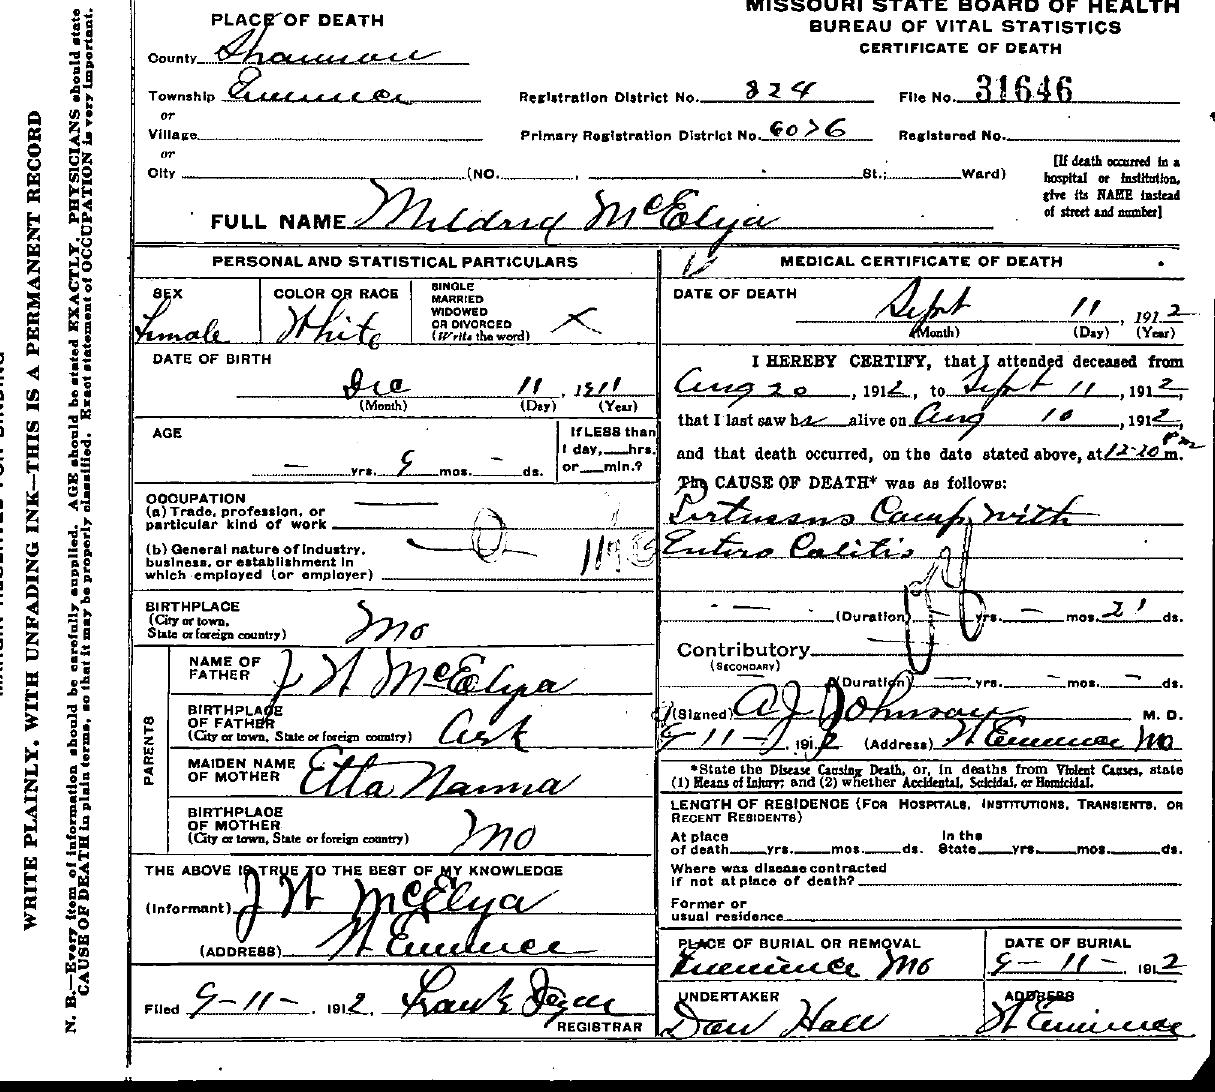 MISSOURI STATE BOARD OF HEALTH
BUREAU OF VITAL STATISTICS
CERTIFICATE OF DEATH
PLACE OF DEATH
County Shannon
Township Eminence Registration District No. 824 File No. 31646
or
Village Primary Registration District No. 6076 Registered No.
or
City (NO. , St.; Ward)
[If death occurred in a
hospital or institution,
give its NAME instead
of street and number]
FULL NAME Mildred McElya
PERSONAL AND STATISTICAL PARTICULARS
SEX
Female
COLOR OR RACE
White
SINGLE
MARRIED
WIDOWED
OR DIVORCED
(Write the word)
X
DATE OF BIRTH
Dec 11, 1911
(Month) (Day) (Year)
AGE
— yrs. 9 mos. — ds.
If LESS than
1 day, hrs.
or min.?
OCCUPATION
(a) Trade, profession, or
particular kind of work
(b) General nature of industry,
business, or establishment in
which employed (or employer)
BIRTHPLACE
(City or town,
State or foreign country)
Mo
PARENTS
NAME OF
FATHER
J H McElya
BIRTHPLACE
OF FATHER
(City or town, State or foreign country)
Ark
MAIDEN NAME
OF MOTHER
Etta Nanna
BIRTHPLACE
OF MOTHER
(City or town, State or foreign country)
Mo
THE ABOVE IS TRUE TO THE BEST OF MY KNOWLEDGE
(Informant) J H McElya
(ADDRESS) W Eminence
Filed 9-11-, 1912. Frank
REGISTRAR
MEDICAL CERTIFICATE OF DEATH
DATE OF DEATH
Sept 11, 1912
(Month) (Day) (Year)
I HEREBY CERTIFY, that I attended deceased from
Aug 20, 1912, to Sept 11, 1912,
that I last saw her alive on Aug 10, 1912,
and that death occurred, on the date stated above, at 12-20 Pm m.
The CAUSE OF DEATH* was as follows:
Pertussus Comp. with
Entero Colitis
(Duration) — yrs. — mos. 21 ds.
Contributory
(SECONDARY)
(Duration) — yrs. — mos. — ds.
(Signed) A J Johnson M. D.
9-11-, 1912 (Address) W Eminence Mo
*State the Disease Causing Death, or, in deaths from Violent Causes, state
(1) Means of Injury; and (2) whether Accidental, Suicidal, or Homicidal.
LENGTH OF RESIDENCE (FOR HOSPITALS, INSTITUTIONS, TRANSIENTS, OR
RECENT RESIDENTS)
At place In the
of death yrs. mos. ds. State yrs. mos. ds.
Where was disease contracted
if not at place of death?
Former or
usual residence
PLACE OF BURIAL OR REMOVAL
Eminence Mo
DATE OF BURIAL
9-11-, 1912
UNDERTAKER
Dan Hall
ADDRESS
W Eminence
WRITE PLAINLY, WITH UNFADING INK—THIS IS A PERMANENT RECORD
N. B.—Every item of information should be carefully supplied. AGE should be stated EXACTLY. PHYSICIANS should state
CAUSE OF DEATH in plain terms, so that it may be properly classified. Exact statement of OCCUPATION is very important.